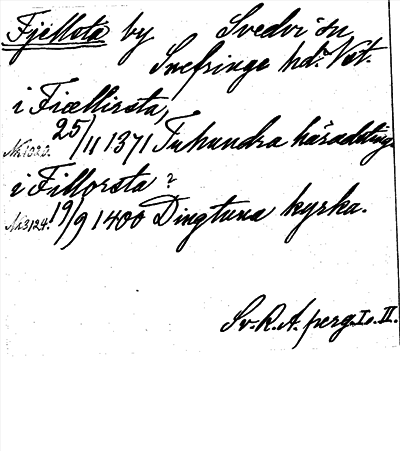 Fjellsta by Svedvi sn
Snefringe hd. Vst.
i Fiællirsta,
Nr 1020. 25/11 1371 Tuhundra häradsting
i Fillorsta?
Nr 3124. 19/9 1400 Dingtuna kyrka.
Sv. R. A. perg. I o. II.